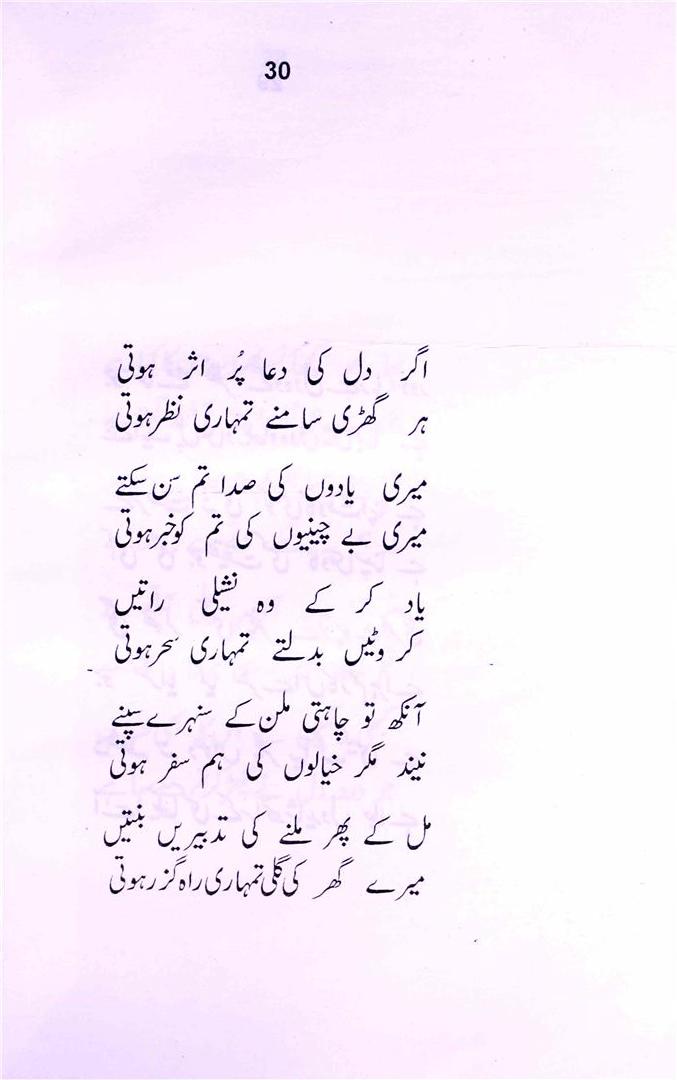 30
اگر دل کی دعا پُر اثر ہوتی
ہر گھڑی سامنے تمہاری نظر ہوتی
میری یادوں کی صدا تم سن سکتے
میری بے چینیوں کی تم کو خبر ہوتی
یاد کر کے وہ نشیلی راتیں
کروٹیں بدلتے تمہاری سحر ہوتی
آنکھ تو چاہتی ملن کے سنہرے سپنے
نیند مگر خیالوں کی ہم سفر ہوتی
مل کے پھر ملنے کی تدبیریں بنتیں
میرے گھر کی گلی تمہاری راہ گزر ہوتی